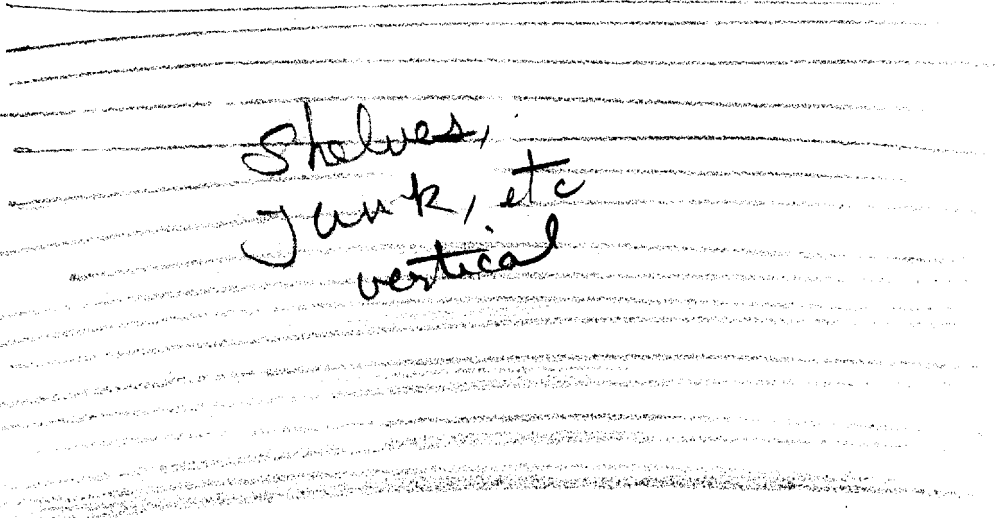 Shelves,
Junk, etc
vertical